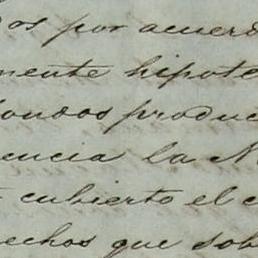 os por acuerd
mente hipote
fondos produc
encia la N
cubierto el c
echos que sob